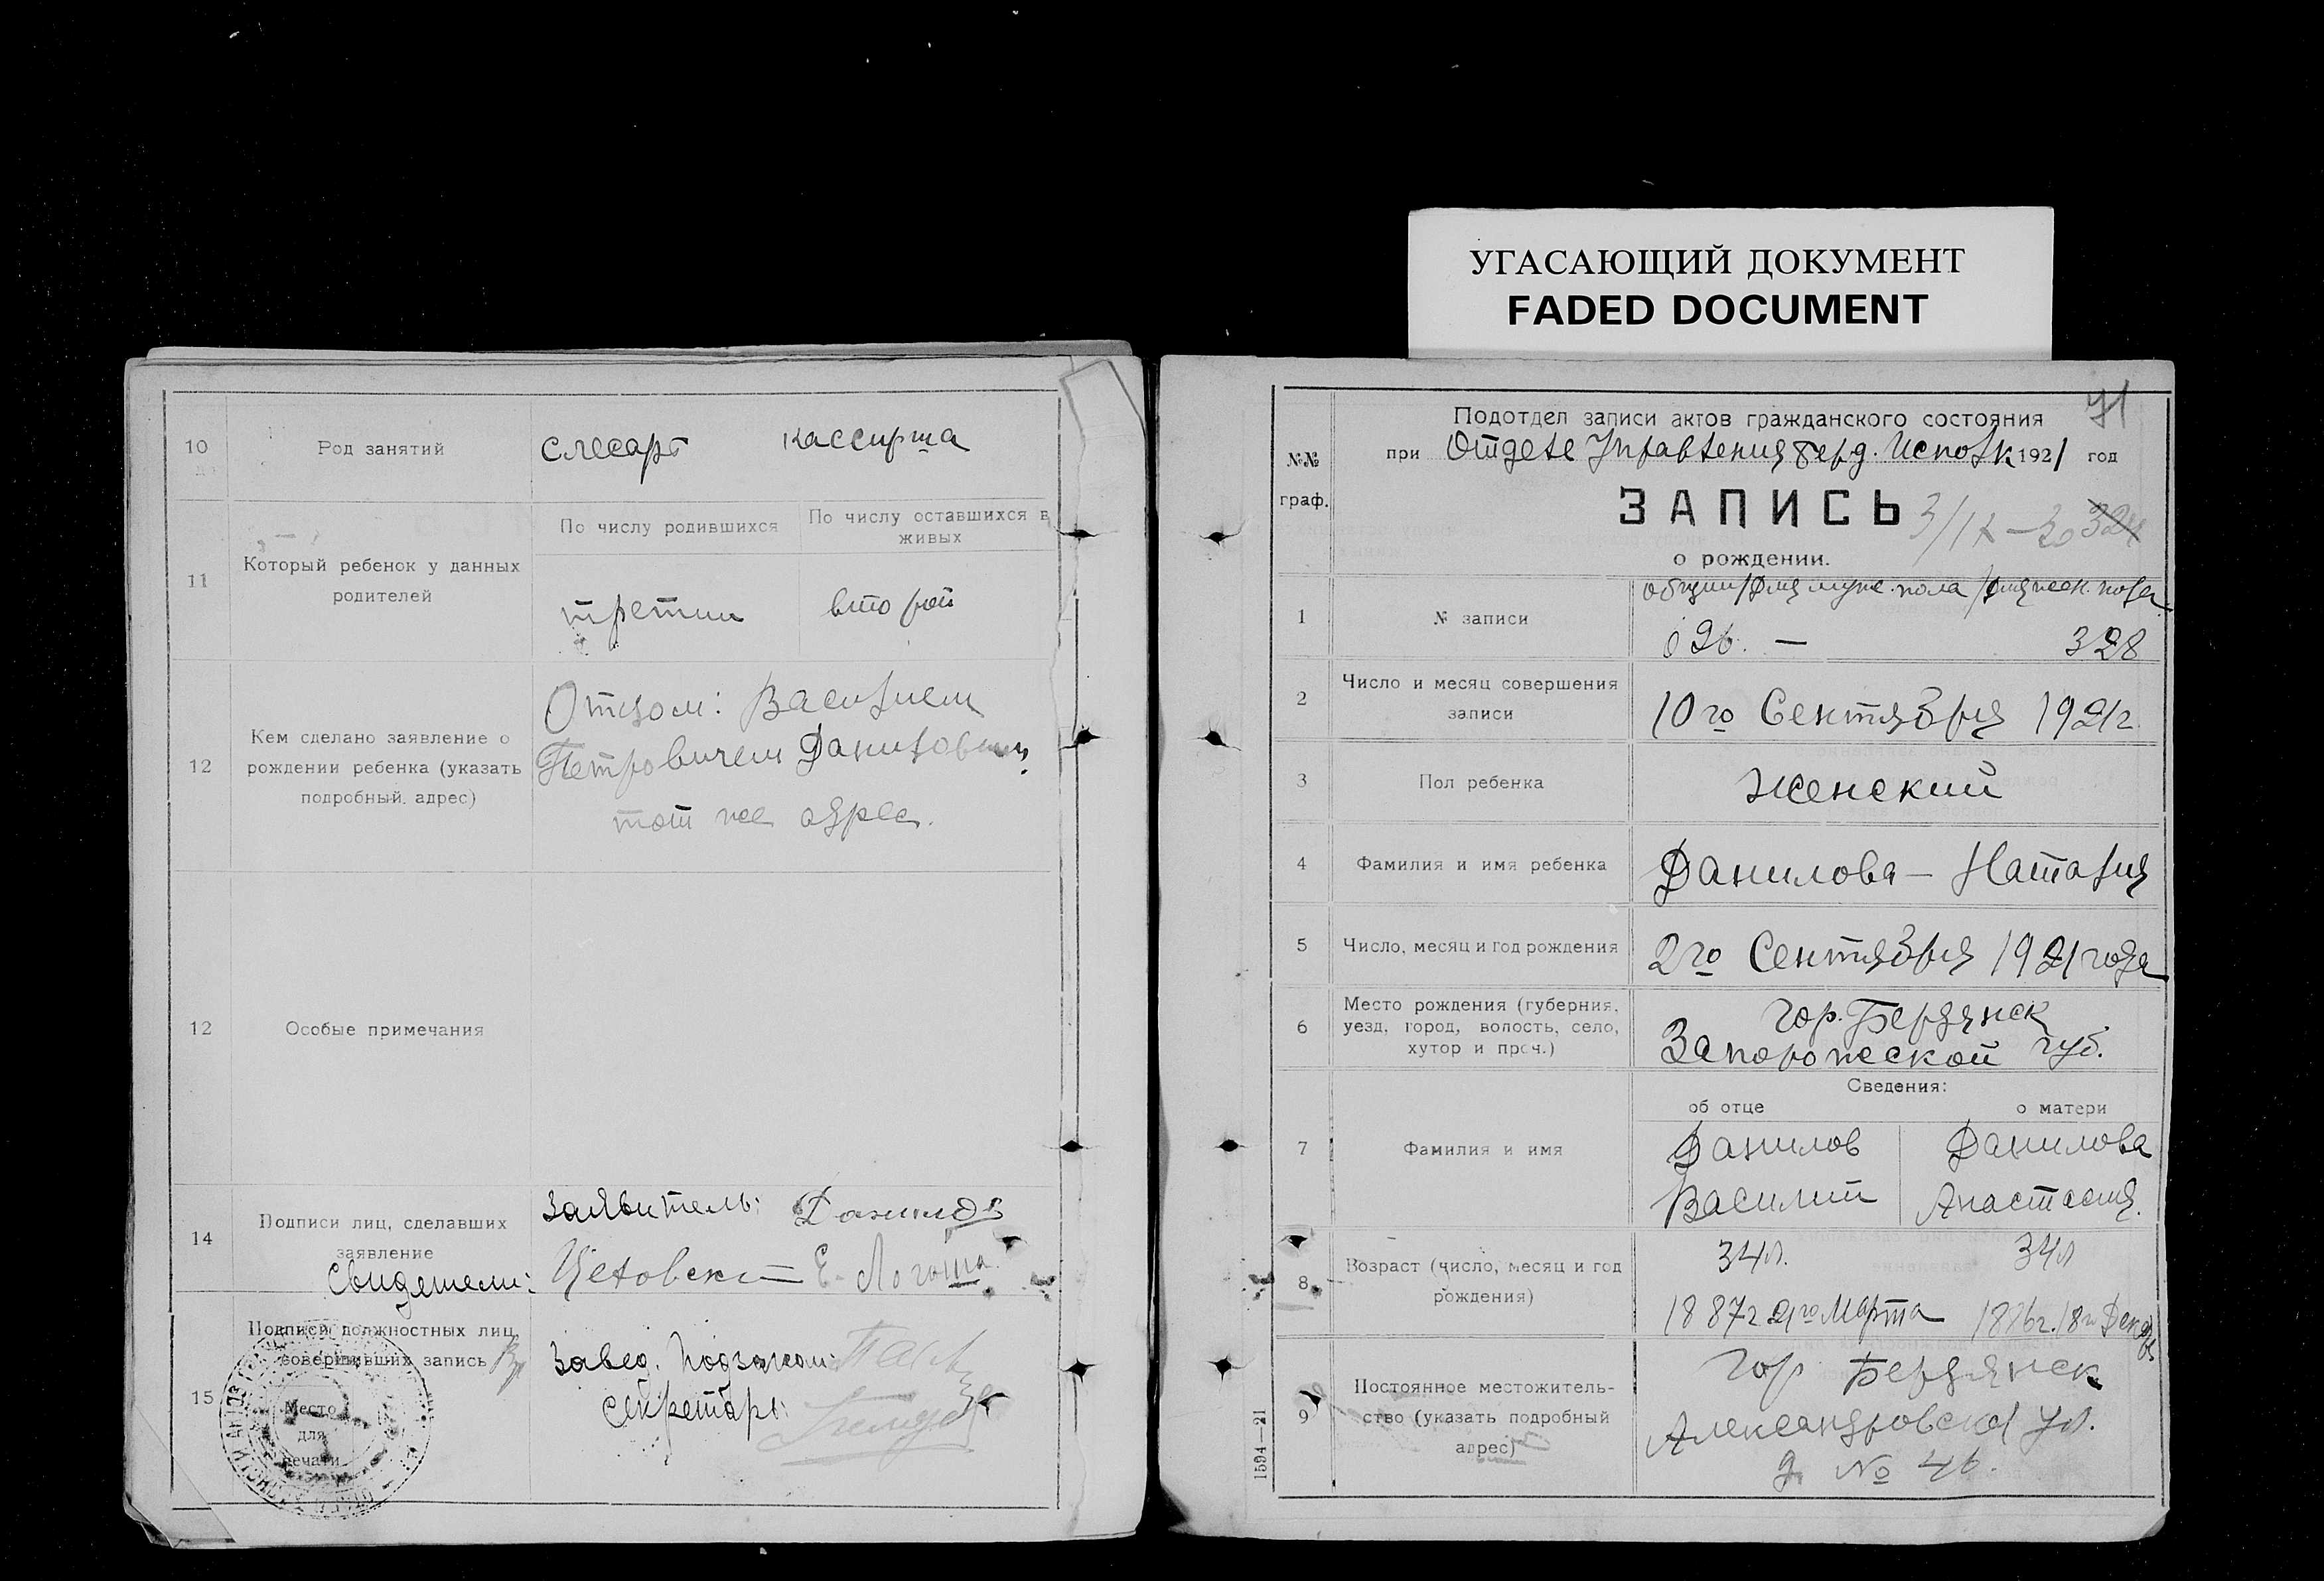 УГАСАЮЩИЙ ДОКУМЕНТ
FADED DOCUMENT
10
Род занятий
слесарь
кассирша
11
Который ребенок у данных
родителей
По числу родившихся
По числу оставшихся в
живых
третий
второй
12
Кем сделано заявление о
рождении ребенка (указать
подробный адрес)
Отцом: Василием
Петровичем Даниловым
тот же адрес.
12
Особые примечания
14
Подписи лиц, сделавших
заявление
Свидетели:
Заявитель: Данилов
Е.
15
Подписи должностных лиц,
совершивших запись
Место
для
печати
Завед. Подзагсом:
Секретарь:
71
№№
граф.
Подотдел записи актов гражданского состояния
при Отделе Управления Берд. Исполк 1921 год
ЗАПИСЬ
о рождении.
1
№ записи
общий/для муж. пола/для жен. пола
626. — 328
2
Число и месяц совершения
записи
10го Сентября 1921г.
3
Пол ребенка
Женский
4
Фамилия и имя ребенка
Данилова — Наталия
5
Число, месяц и год рождения
2го Сентября 1921 года
6
Место рождения (губерния,
уезд, город, волость, село,
хутор и проч.)
гор. Бердянск
Запорожской губ.
Сведения:
об отце
о матери
7
Фамилия и имя
Данилов
Василий
Данилова
Анастасия.
8
Возраст (число, месяц и год
рождения)
34л.
34л
1887г 21го Марта
1886г. 18го Декабр
9
Постоянное местожитель-
ство (указать подробный
адрес)
гор Бердянск
Александровская ул.
д. № 46.
1594—21